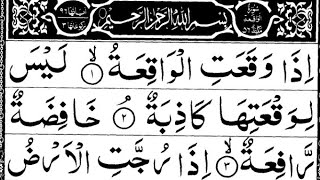 بِسْمِ اللّٰهِ الرَّحْمٰنِ الرَّحِيْمِ
اِذَا وَقَعَتِ الْوَاقِعَةُ ۙ ١ لَيْسَ
لِوَقْعَتِهَا كَاذِبَةٌ ۘ ٢ خَافِضَةٌ
رَّافِعَةٌ ۙ ٣ اِذَا رُجَّتِ الْاَرْضُ